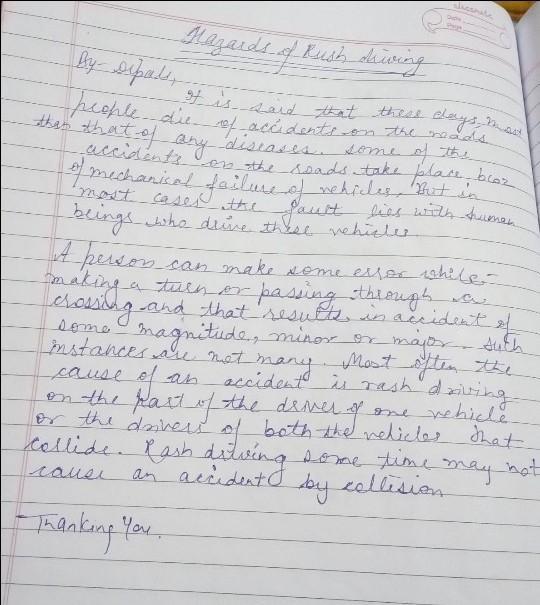 Classmate
Date
Page
Hazards of Rush driving
By- Dipali,
It is said that these days, most
people die of accidents on the roads
than that of any diseases. some of the
accidents on the roads take place bcoz
of mechanical failure of vehicles, But in
most cases the fault lies with human
beings who drive these vehicles
A person can make some error while-
making a turn or passing through a
crossing and that results in accident of
some magnitude, minor or major. Such
instances are not many. Most often the
cause of an accident is rash driving
on the part of the driver of one vehicle
or the drivers of both the vehicles that
collide. Rash driving some time may not
cause an accident by collision
Thanking You.